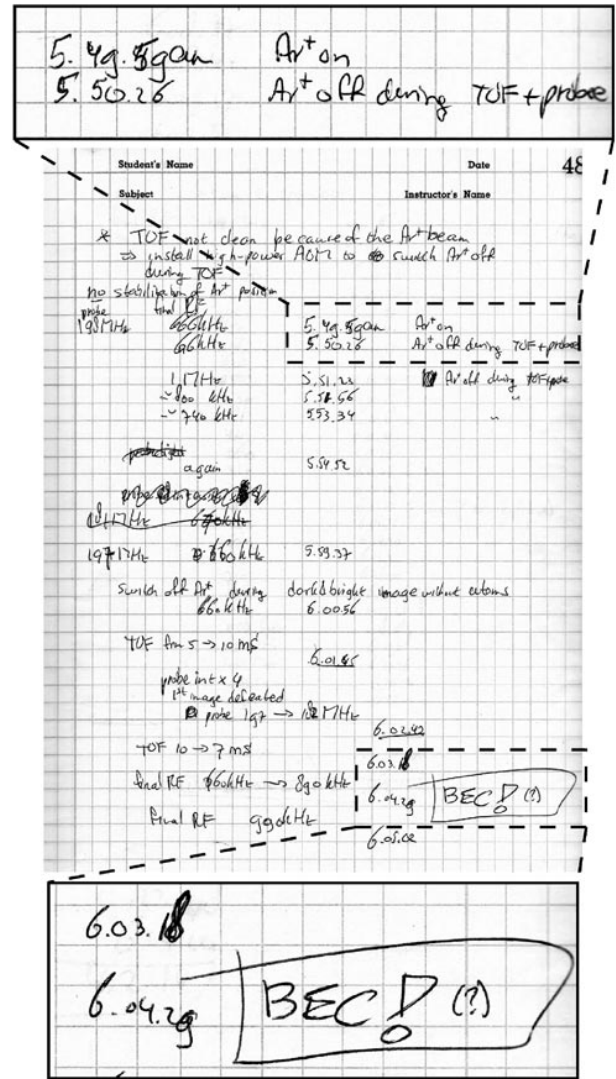 5. 49. 59am Ar⁺ on
5. 50.26 Ar⁺ off during TOF + probe
Student's Name Date 48
Subject Instructor's Name
* TOF not clean because of the Ar⁺ beam
⇒ install high-power AOM to switch Ar⁺ off
during TOF
no stabilization of Ar⁺ position
probe final RF
198MHz 660kHz 5. 49. 59am Ar⁺ on
660kHz 5. 50.26 Ar⁺ off during TOF + probe
1,1MHz 5.51.23 Ar⁺ off during TOF+probe
~ 800 kHz 5.52.56 "
~ 740 kHz 5.53.34 "
again 5.54.52
197MHz 660kHz 5.59.37
switch off Ar⁺ during dark & bright image without atoms
660kHz 6.00.56
TOF from 5 → 10 ms
6.01.45
probe int x 4
1st image defeated
probe 197 → MHz
6.02.42
TOF 10 → 7 ms
6.03.18
final RF 660kHz → 890kHz 6.04.29 BEC! (?)
final RF 990kHz
6.05.02
6.03.18
6.04.29 BEC! (?)